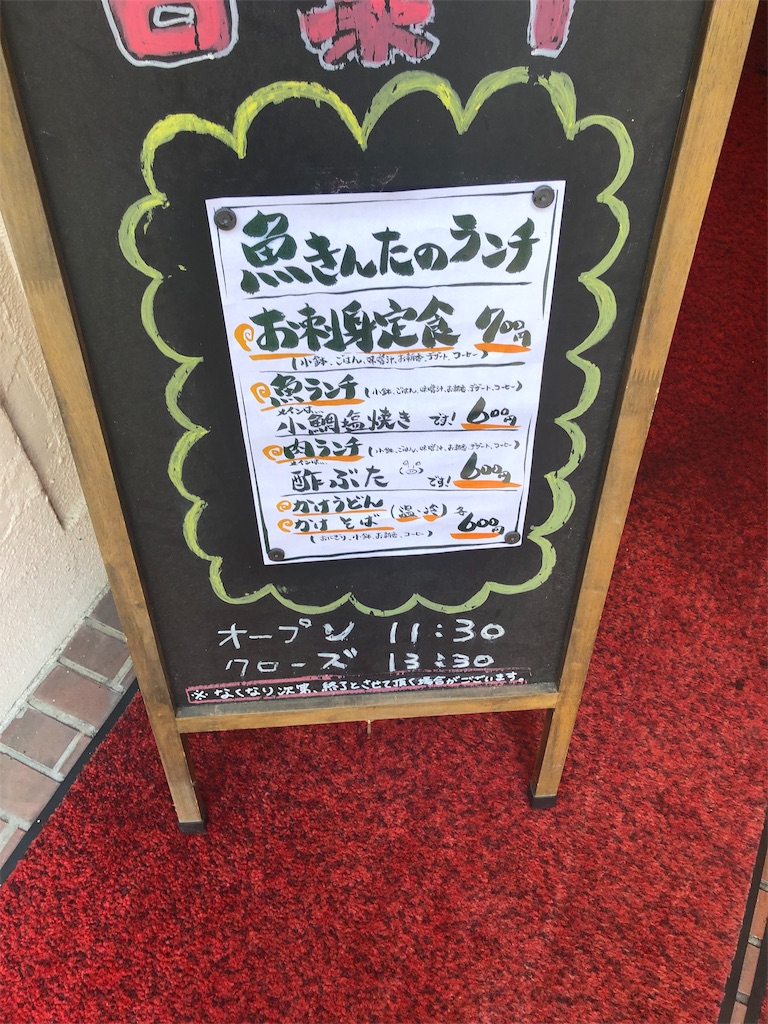 魚きんたのランチ
お刺身定食 700円
(小鉢、ごはん、味噌汁、お新香、デザート、コーヒー)
魚ランチ (小鉢、ごはん、味噌汁、お新香、デザート、コーヒー)
メインは…
小鯛塩焼き です! 600円
肉ランチ (小鉢、ごはん、味噌汁、お新香、デザート、コーヒー)
メインは…
酢ぶた です! 600円
かけうどん
かけそば (温・冷) 各 600円
(おにぎり、小鉢、お新香、コーヒー)
オープン 11:30
クローズ 13:30
※なくなり次第、終了とさせて頂く場合がございます。